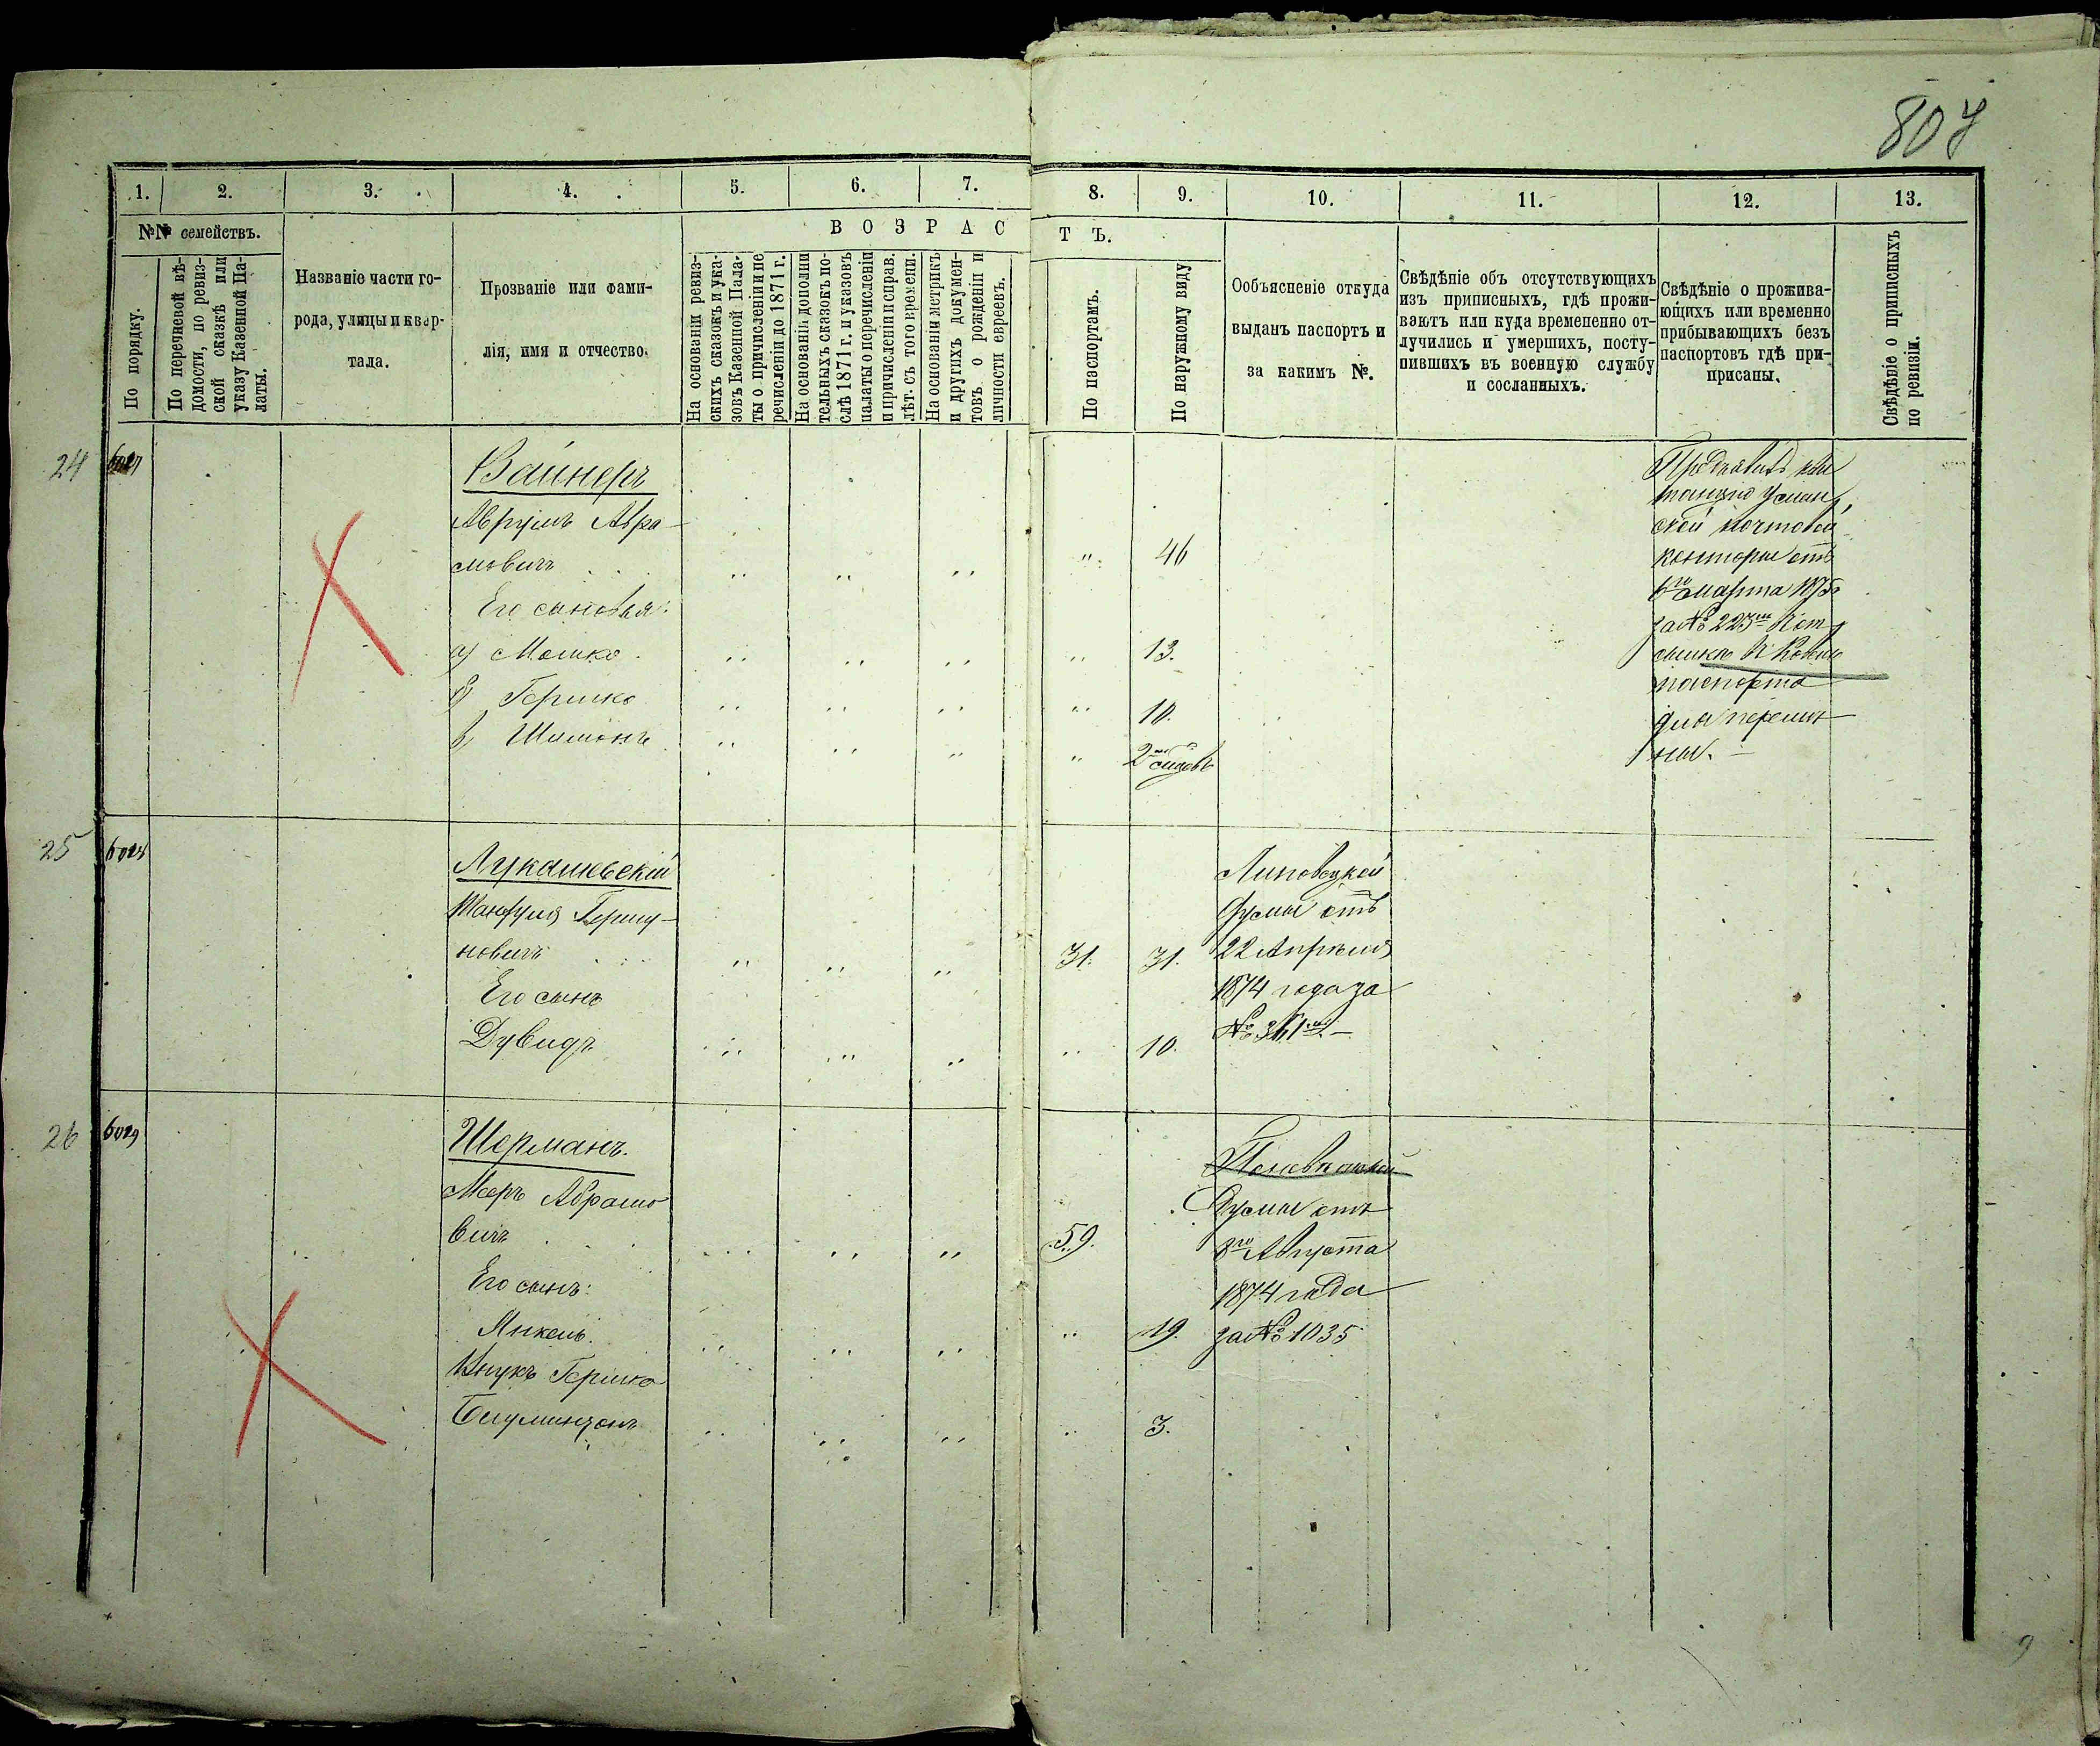 807
1.
2.
3.
4.
5.
6.
7.
8.
9.
10.
11.
12.
13.
№№ семействъ.
В О З Р А С
Т Ъ.
По порядку.
По перечневой вѣ-
домости, по ревиз-
ской сказкѣ или
указу Казенной Па-
латы.
Названіе части го-
рода, улицы и квар-
тала.
Прозваніе или фами-
лія, имя и отчество.
На основаніи ревиз-
скихъ сказокъ и ука-
зовъ Казенной Пала-
ты о причисленіи и пе
речисленіи до 1871 г.
На основаніи дополни
тельныхъ сказокъ по-
слѣ 1871 г. и указовъ
палаты о перечисленіи
и причисленіи и справ.
лѣт. съ того времени.
На основаніи метрикъ
и другихъ докумен-
товъ о рожденіи и
личности евреевъ.
По паспортамъ.
По наружному виду
Ообъясненіе откуда
выданъ паспортъ и
за какимъ №.
Свѣдѣніе объ отсутствующихъ
изъ приписныхъ, гдѣ прожи-
ваютъ или куда временно от-
лучились и умершихъ, посту-
пившихъ въ военную службу
и сосланныхъ.
Свѣдѣніе о прожива-
ющихъ или временно
прибывающихъ безъ
паспортовъ гдѣ при-
присаны.
Свѣдѣніе о приписныхъ
по ревизіи.
24
Вайнеръ
Аврумъ Авра-
мовичъ
46
Его сыновья:
а) Мошко
13.
б) Гершко
10.
в) Шимонъ
2
Предъявилъ кви
танцію Уман
ской почтовой
конторы отъ
6го Марта 1875
за № 223
паспорта
для перемѣ
ны.
25
6028
Лукашевскій
Манфуля Гершу-
новичъ
31.
31.
Его сынъ
Дувидъ
10.
Липовецкой
Думы отъ
22 Апрѣля
1874 года за
№ 361
26
6029
Шерманъ.
Меръ Абрамо
вичъ
59.
Его сынъ:
Янкель.
19.
Внукъ Гершко
3.
Думы отъ
8го Августа
1874 года
за № 1035